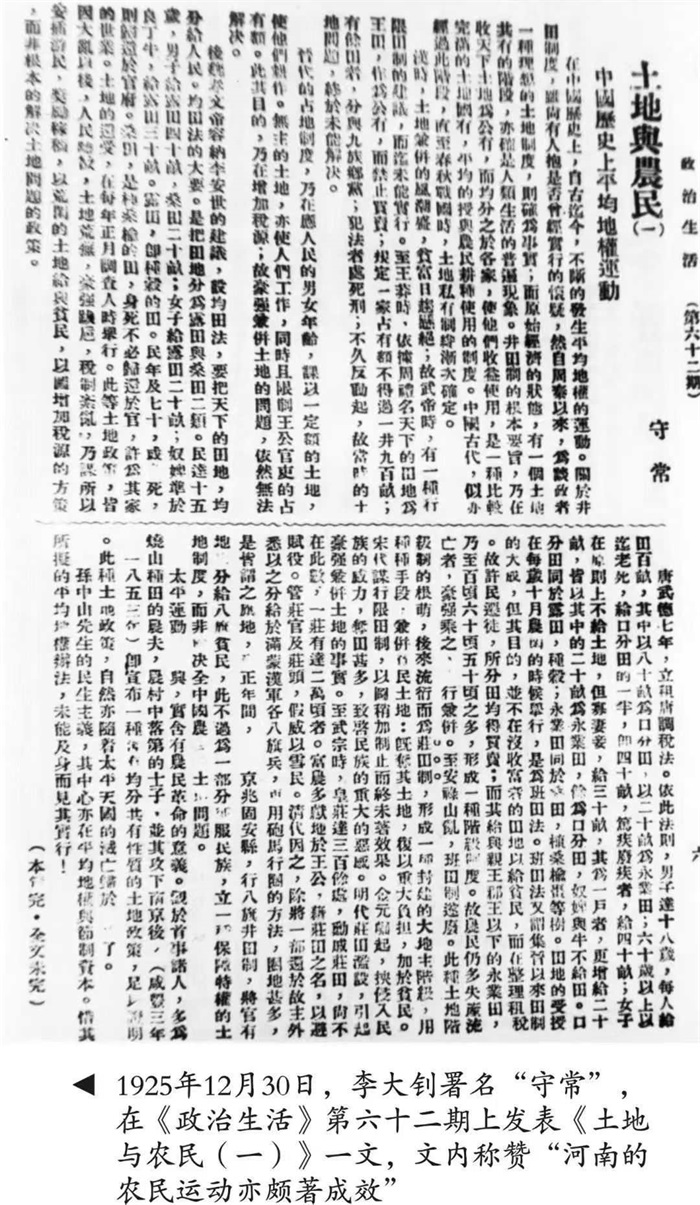 政治生活
(第六十二期)
六
土地與農民(一)
守常
中國歷史上平均地權運動
在中國歷史上,自古迄今,不斷的發生平均地權的運動。關於井
田制度,雖尚有人抱是否曾經實行的懷疑,然自周秦以來,為談政者
一種理想的土地制度,則確為事實;而原始經濟的狀態,有一個土地
共有的階段,亦確是人類生活的普遍現象。井田制的根本要旨,乃在
收天下土地為公有,而均分之於各家,使他們收益使用,是一種比較
完滿的土地國有,平均的授與農民耕種使用的制度。中國古代,似亦
經過此階段,直至春秋戰國時,土地私有制纔漸次確定。
漢時,土地兼併的風潮盛,貧富日趨懸絕;故武帝時,有一種行
限田制的建議,而迄未能實行。至王莽時,依據周禮名天下的田地為
王田,作為公有,而禁止買賣;規定一家占有額不得過一井九百畝;
有餘田者,分與九族鄉黨;犯法者處死刑;不久反動起,故當時的土
地問題,終於未能解決。
晉代的占地制度,乃在應人民的男女年齡,課以一定額的土地,
使他們耕作。無主的土地,亦使人們工作,同時且限制王公官吏的占
有額。此其目的,乃在增加稅源;故豪强兼併土地的問題,依然無法
解決。
後魏孝文帝容納李安世的建議,設均田法,要把天下的田地,均
分給人民。均田法的大要。是把田地分為露田與桑田二類。民達十五
歲,男子給露田四十畝,桑田二十畝;女子給露田二十畝;奴婢準於
良丁牛,給露田三十畝。露田,卽種穀的田。民年及七十,或身死,
則歸還於官府。桑田,是植桑楡的田,身死不必歸還於官,許為其家
的世業。土地的還受,在每年正月調查人時舉行。此等土地政策,皆
因大亂以後,人民離散,土地荒蕪,豪强踐扈,稅制紊亂,乃謀所以
安插游民,獎勵稼穡,以荒閑的土地給與貧民,以圖增加稅源的方策
,而非根本的解決土地問題的政策。
唐武德七年,立租庸調稅法。依此法則,男子達十八歲,每人給
田百畝,其中以八十畝為口分田,以二十畝為永業田;六十歲以上以
迄老死,給口分田的一半,卽四十畝,篤疾廢疾者,給四十畝;女子
在原則上不給土地,但寡妻妾,給三十畝,其為一戶者,更增給二十
畝,皆以其中的二十畝為永業田,餘為口分田,奴婢與牛不給田。口
分田同於露田,種穀;永業田同於桑田,植桑楡棗等樹。田地的受授
在每歲十月農閑的時候舉行,是為班田法。班田法又謂集晉以來田制
的大成,但其目的,並不在沒收富者的田地以給貧民,而在整理租稅
。故許民遷徙,所分田均得買賣;而其給與親王郡王以下的永業田,
乃至百頃六十頃五十頃之多,形成一種階級制度。故農民仍多失產流
亡者,豪强乘之、行兼併。至安祿山亂,班田制遂廢。此種土地階
級制的根萌,後來流衍而為莊田制,形成一種封建的大地主階級,用
種種手段,兼併貧民土地;旣奪其土地,復以重大負担,加於貧民。
宋代謀行限田制,以圖稍加制止而終未著效果。金元崛起,挾侵入民
族的威力,奪田甚多,致啓民族的重大的惡感。明代莊田濫設,引起
豪强兼併土地的事實。至武宗時,皇莊達三百餘處,勳戚莊田,尙不
在此數,一莊有達二萬頃者。富農多獻地於王公,藉莊田之名,以避
賦役。管莊官及莊頭,假威以虐民。清代因之,除將一部還於故主外
悉以之分給於滿蒙漢軍各八旗兵,更用砲馬行圈的方法,圈地甚多,
是皆謂之旗地,正年間,京兆固安縣,行八旗井田制,將官有
地分給八旗貧民,此不過為一部分征服民族,立一種保障特權的土
地制度,而非決全中國農土地問題。
太平運動興,實含有農民革命的意義。觀於首事諸人,多為
燒山種田的農夫,農村中落第的士子,並其攻下南京後,(咸豐三年
一八五三年)卽宣布一種均分共有性質的土地政策,足以證明
。此種土地政策,自然亦隨着太平天國的滅亡歸於了。
孫中山先生的民生主義,其中心亦在平均地權與節制資本。惜其
所擬的平均地權辦法,未能及身而見其實行!
(本章完·全文未完)
◀ 1925年12月30日,李大钊署名“守常”,
在《政治生活》第六十二期上发表《土地
与农民(一)》一文,文内称赞“河南的
农民运动亦颇著成效”